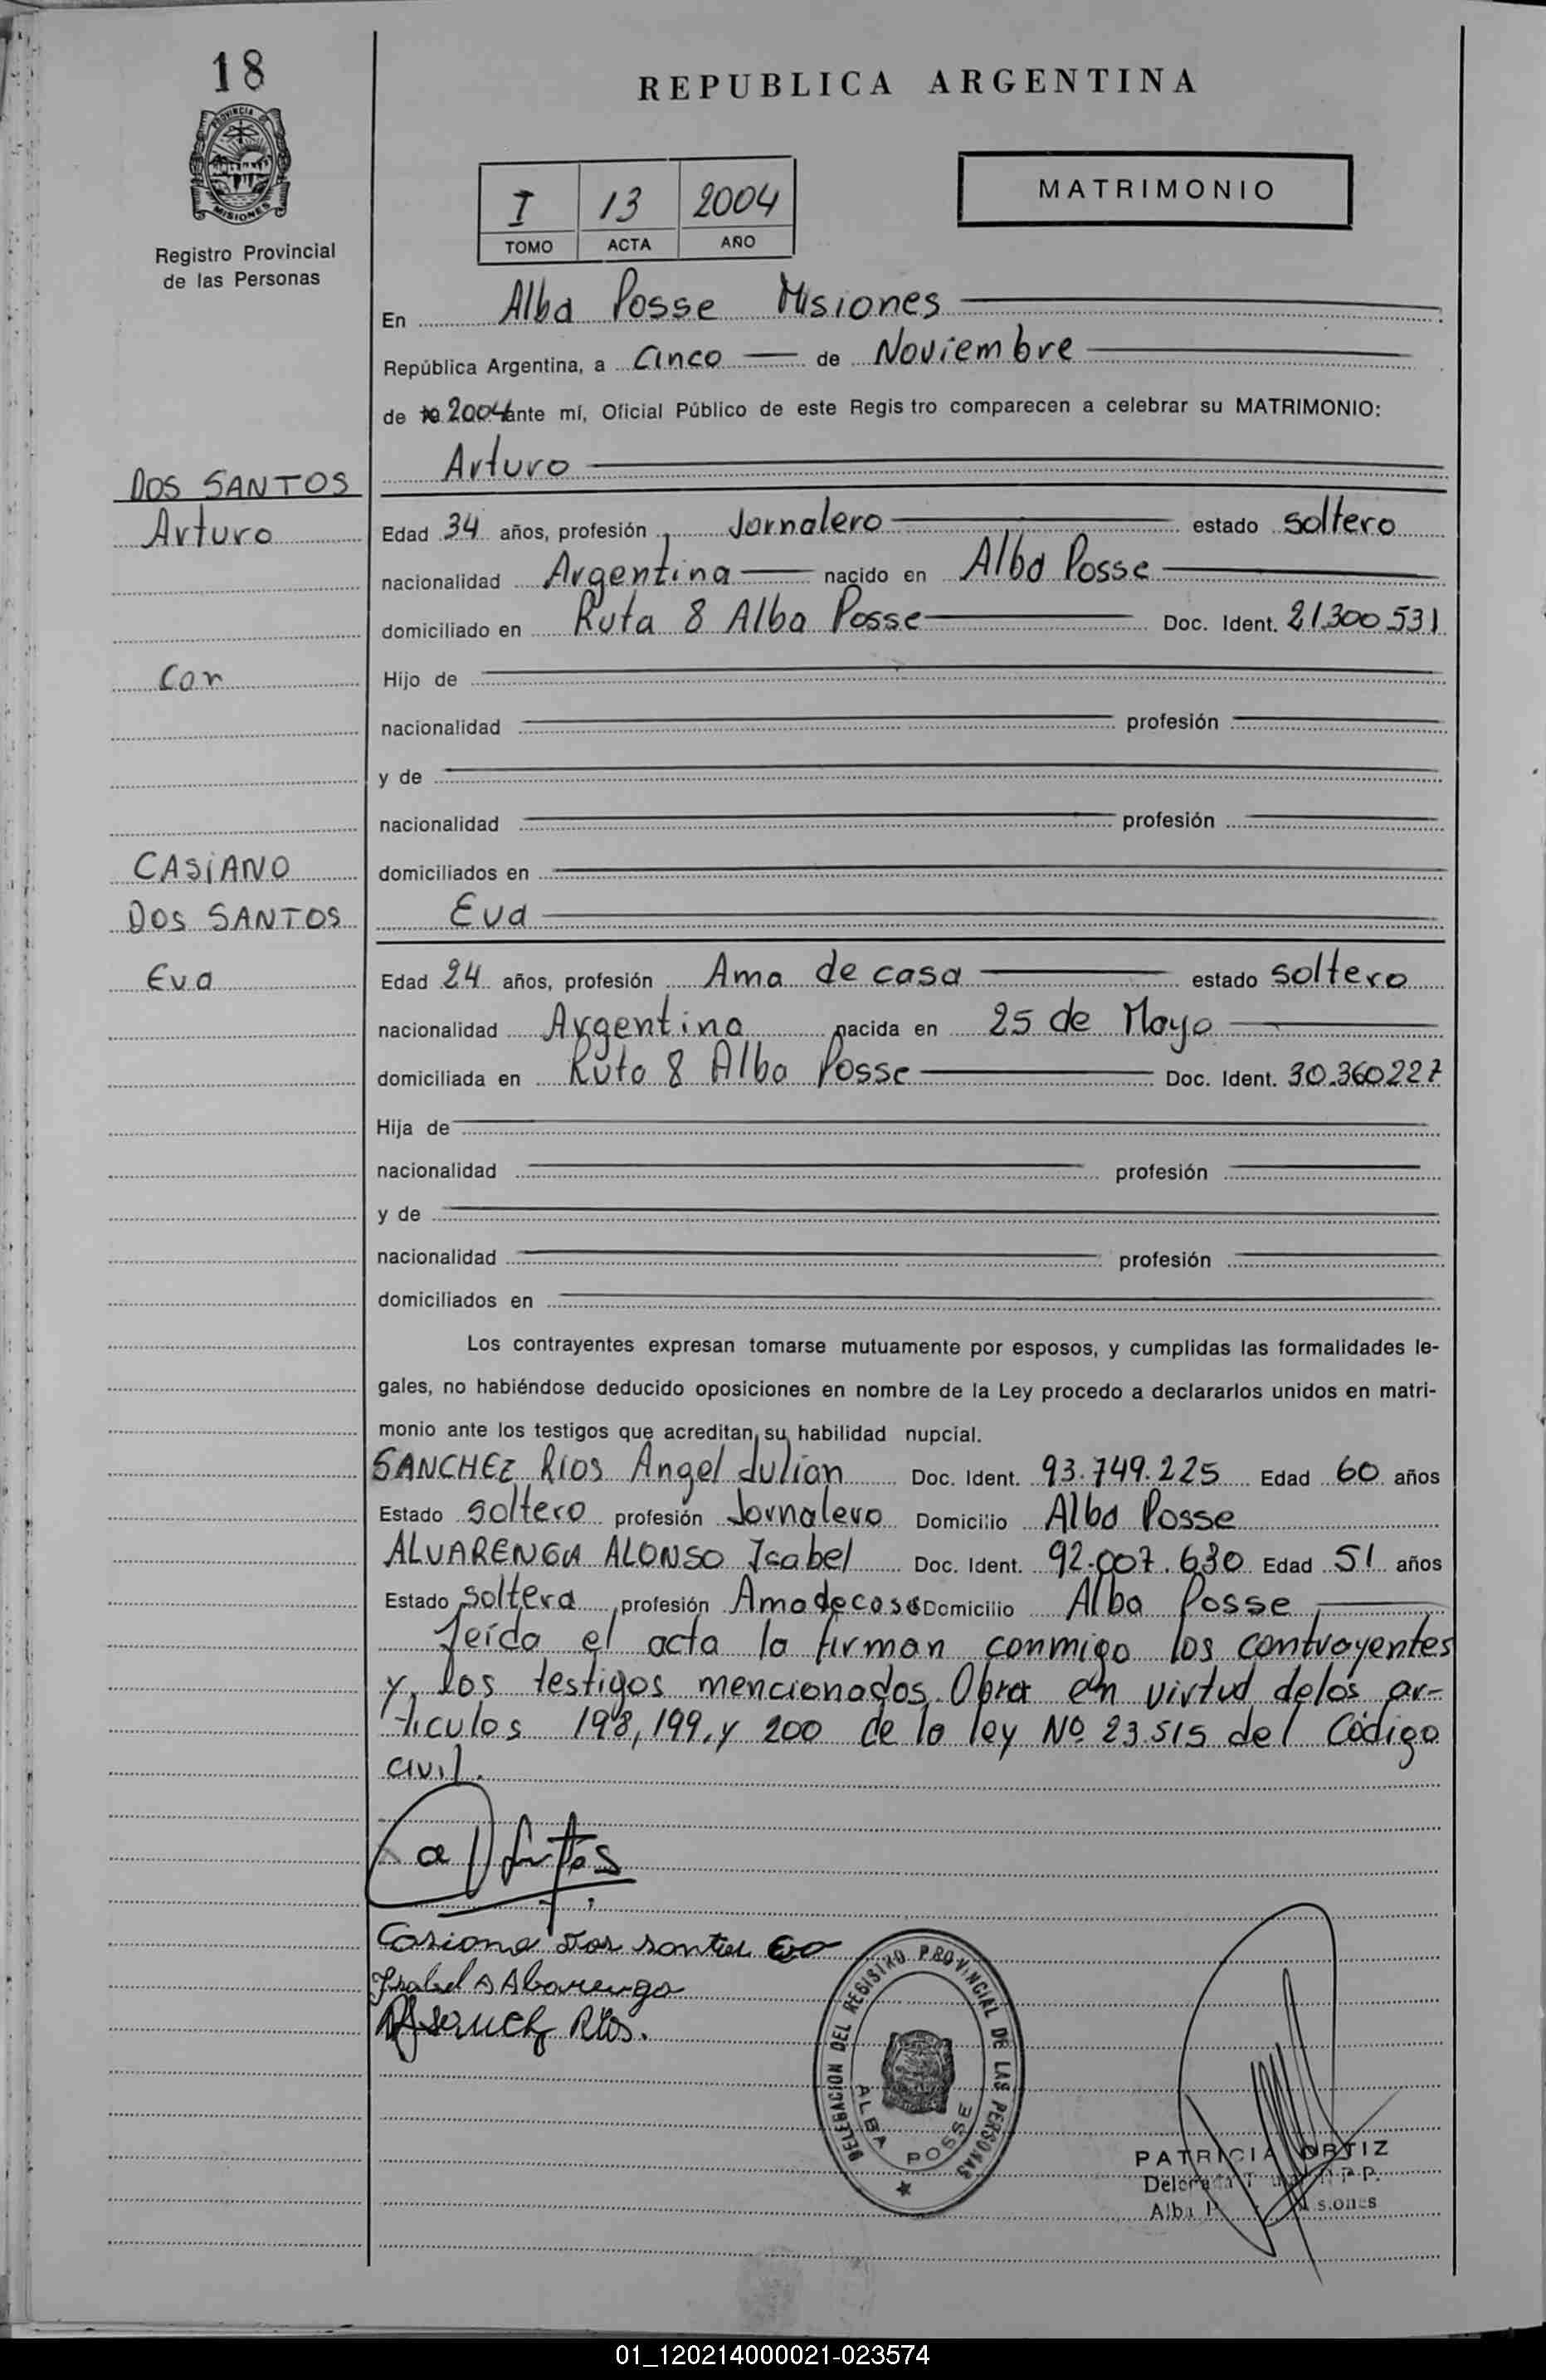 18
PROVINCIA DE
MISIONES
Registro Provincial
de las Personas
REPUBLICA ARGENTINA
I 13 2004
TOMO ACTA AÑO
MATRIMONIO
En Alba Posse Misiones
República Argentina, a Cinco de Noviembre
de 2004 ante mí, Oficial Público de este Regis tro comparecen a celebrar su MATRIMONIO:
DOS SANTOS
Arturo
Con
CASIANO
DOS SANTOS
Eva
Arturo
Edad 34 años, profesión Jornalero estado soltero
nacionalidad Argentina nacido en Alba Posse
domiciliado en Ruta 8 Alba Posse Doc. Ident. 21.300.531
Hijo de
nacionalidad profesión
y de
nacionalidad profesión
domiciliados en
Eva
Edad 24 años, profesión Ama de casa estado soltero
nacionalidad Argentina nacida en 25 de Mayo
domiciliada en Ruta 8 Alba Posse Doc. Ident. 30.360227
Hija de
nacionalidad profesión
y de
nacionalidad profesión
domiciliados en
Los contrayentes expresan tomarse mutuamente por esposos, y cumplidas las formalidades le-
gales, no habiéndose deducido oposiciones en nombre de la Ley procedo a declararlos unidos en matri-
monio ante los testigos que acreditan su habilidad nupcial.
SANCHEZ RIOS Angel Julian Doc. Ident. 93.749.225 Edad 60 años
Estado soltero profesión Jornalero Domicilio Alba Posse
ALVARENGA ALONSO Isabel Doc. Ident. 92.007.630 Edad 51 años
Estado soltera profesión Ama de casa Domicilio Alba Posse
Leída el acta la firman conmigo los contrayentes
y los testigos mencionados. Obra en virtud de los ar-
tículos 198, 199, y 200 de la ley Nº 23.515 del Código
civil.
Casiano Dos santos Eva
Isabel A Alvarenga
Sanchez Rios.
DELEGACION DEL REGISTRO PROVINCIAL DE LAS PERSONAS
ALBA POSSE
PATRICIA ORTIZ
01_120214000021-023574